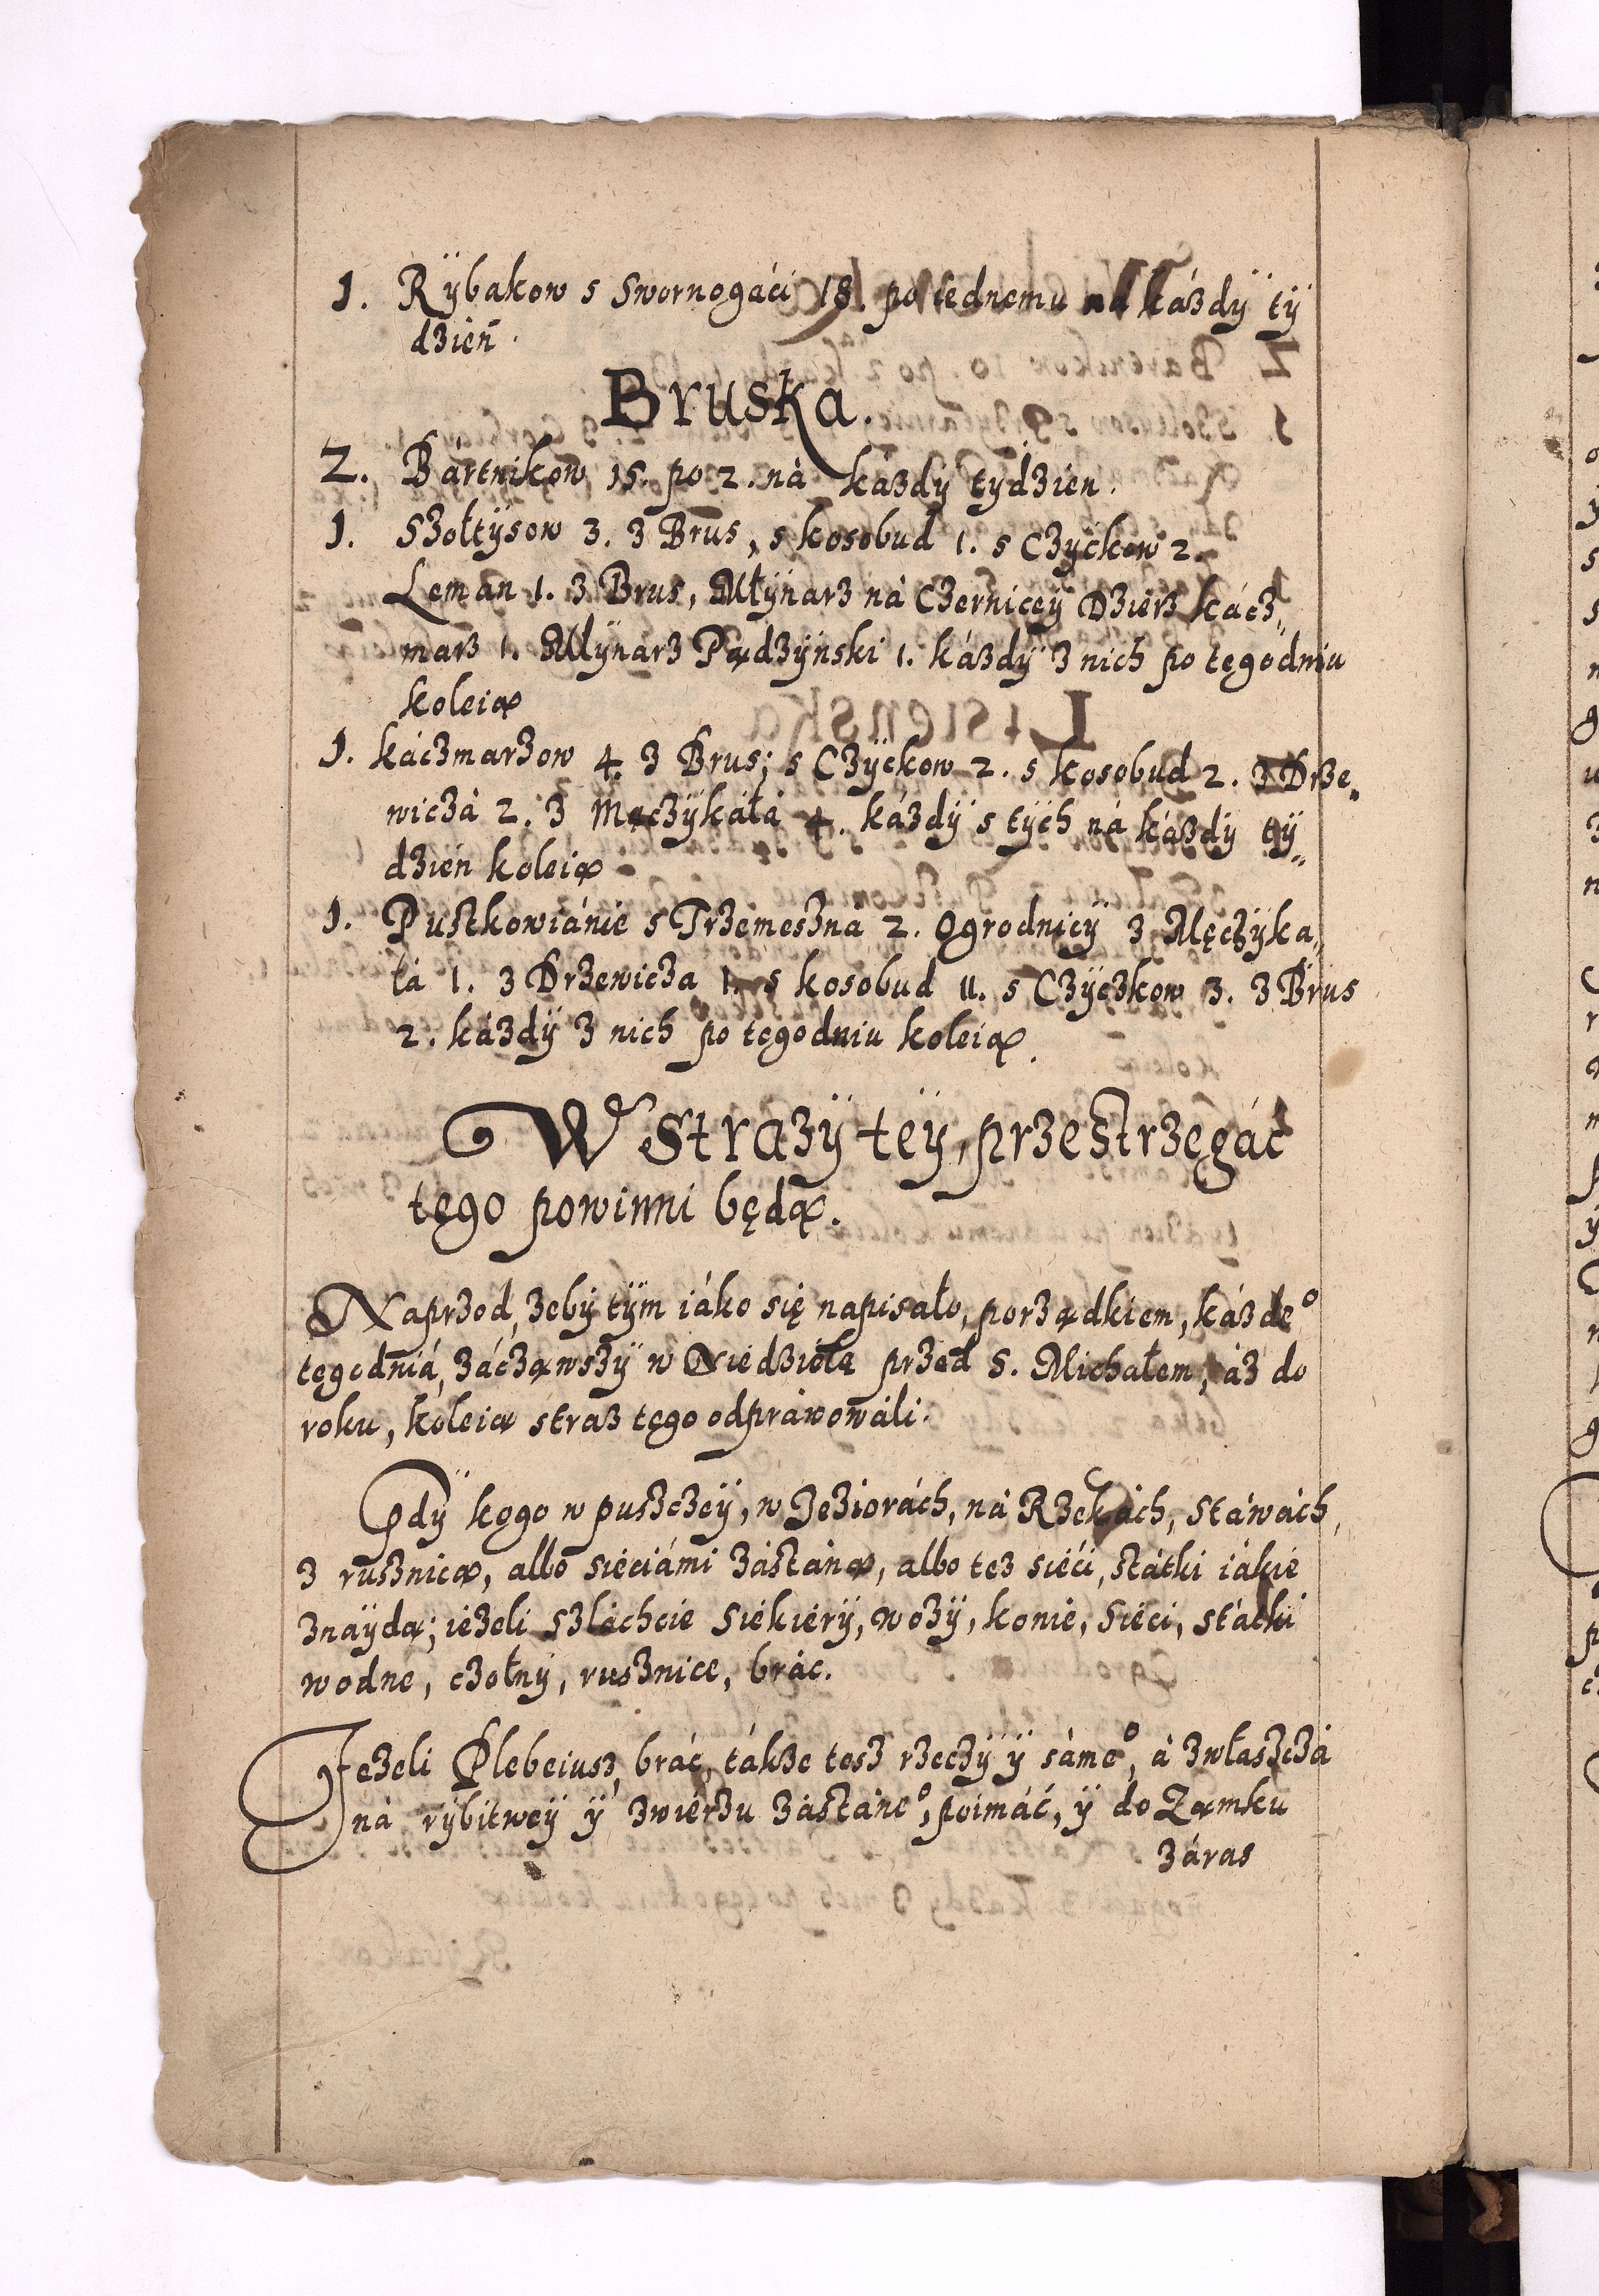 1. Rÿbakow s Swornogáci 18. po iednemu ná káżdÿ tÿ
dzień.
Bruska.
2. Bártnikow 15. po 2. ná káżdÿ tÿdzień.
1. Szołtÿsow 3. z Brus, s kosobud 1. s Czÿckow 2.
Leman 1. z Brus, Młÿnarz ná Czerniceÿ Dzierż kácz„
marz 1. Młÿnarz Pądzÿnski 1. káżdÿ z nich po tęgodniu
koleią
1. káczmarzow 4. z Brus; s Czÿckow 2. s kosobud 2. z Drze„
wiczá 2. z Męczÿkáłá 4. káżdÿ s tÿch ná káżdÿ tÿ„
dzień koleią
1. Pustkowiánie s Trzemeszná 2. Ogrodnicÿ z Męczÿka„
łá 1. z Drzewicza 1. s kosobud 11. s Czÿczkow 3. z Brus
2. káżdÿ z nich po tęgodniu koleią.
W Strażÿ teÿ, przestrzęgáć
tęgo powinni będą.
Naprzod, żebÿ tÿm iáko się napisało, porządkiem, káżdeº
tęgodniá, zácząwszÿ w Niedziołę przed S. Michałem, áż do
roku, koleią straż tęgo odpráwowáli.
Gdÿ kogo w puszczeÿ, w Jeziorách, ná Rzekách, stáwách,
z rusznicą, albo sieciámi zástáną, albo też sieći, státki iákie
znaÿdą; ieżeli szláchcie siekierÿ, wozÿ, konie, sieci, státki
wodne, czołnÿ, rusznice, bráć.
Jeżeli Plebeiusz, bráć, tákże tesz rzeczÿ ÿ sámeº, á zwłaszczá
ná rÿbitweÿ ÿ zwierzu zástáneº, poimáć, ÿ do Zamku
záras